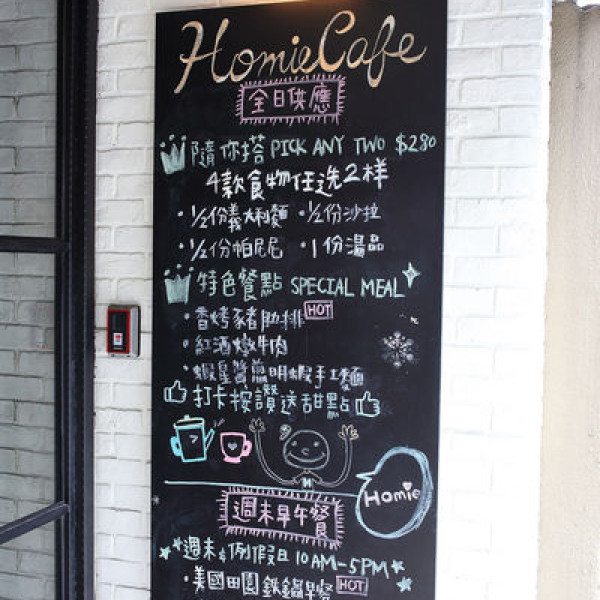 Homie Cafe
全日供應
隨你搭 PICK ANY TWO $280
4款食物任選2樣
·1/2份義大利麵 ·1/2份沙拉
·1/2份帕尼尼 ·1份湯品
特色餐點 SPECIAL MEAL
·香烤豬肋排 HOT
·紅酒燉牛肉
·蝦皇醬煎明蝦手工麵
打卡按讚送甜點
M
Homie
週末早午餐
週末&例假日 10AM-5PM
·美國田園鉄鍋早餐 HOT